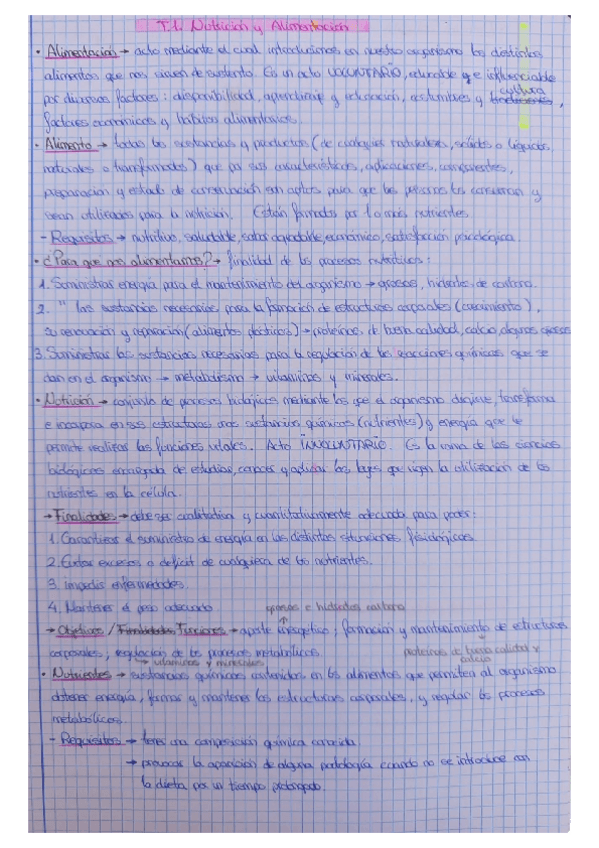 T.1. Nutrición y Alimentación
• Alimentación → acto mediante el cual introducimos en nuestro organismo los distintos
alimentos que nos sirven de sustento. Es un acto VOLUNTARIO, educable e influenciable
por diversos factores: disponibilidad, aprendizaje y educación, costumbres y cultura,
factores económicos y hábitos alimentarios.
• Alimento → todas las sustancias y productos (de cualquier naturaleza, sólidos o líquidos
naturales o transformados) que por sus características, aplicaciones, componentes,
preparación y estado de conservación son aptos para que las personas los consuman y
sean utilizados para la nutrición. Están formados por 1 o más nutrientes.
- Requisitos → nutritivo, saludable, sabor agradable, económico, satisfacción psicológica.
• ¿Para qué nos alimentamos? → finalidad de los procesos nutritivos:
1. Suministrar energía para el mantenimiento del organismo → grasas, hidratos de carbono.
2. " las sustancias necesarias para la formación de estructuras corporales (crecimiento),
su renovación y reparación (alimentos plásticos) → proteínas de buena calidad, calcio, algunas grasas
3. Suministrar las sustancias necesarias para la regulación de las reacciones químicas que se
dan en el organismo → metabolismo → vitaminas y minerales.
• Nutrición → conjunto de procesos biológicos mediante los que el organismo digiere, transforma
e incorpora en sus estructuras unas sustancias químicas (nutrientes) y energía que le
permite realizar las funciones vitales. Acto INVOLUNTARIO. Es la rama de las ciencias
biológicas encargada de estudiar, conocer y aplicar las leyes que rigen la utilización de los
nutrientes en la célula.
→ Finalidades → debe ser cualitativa y cuantitativamente adecuada para poder:
1. Garantizar el suministro de energía en las distintas situaciones fisiológicas.
2. Evitar excesos o déficit de cualquiera de los nutrientes.
3. impedir enfermedades.
4. Mantener el peso adecuado
grasas e hidratos carbono
→ Objetivos / Finalidades Funciones → aporte energético; formación y mantenimiento de estructuras
corporales, regulación de los procesos metabólicos.
proteínas de buena calidad y
calcio
→ vitaminas y minerales
• Nutrientes → sustancias químicas contenidas en los alimentos que permiten al organismo
obtener energía, formar y mantener las estructuras corporales, y regular los procesos
metabólicos.
- Requisitos → tener una composición química conocida.
→ provocar la aparición de alguna patología cuando no se introduce con
la dieta por un tiempo prolongado.